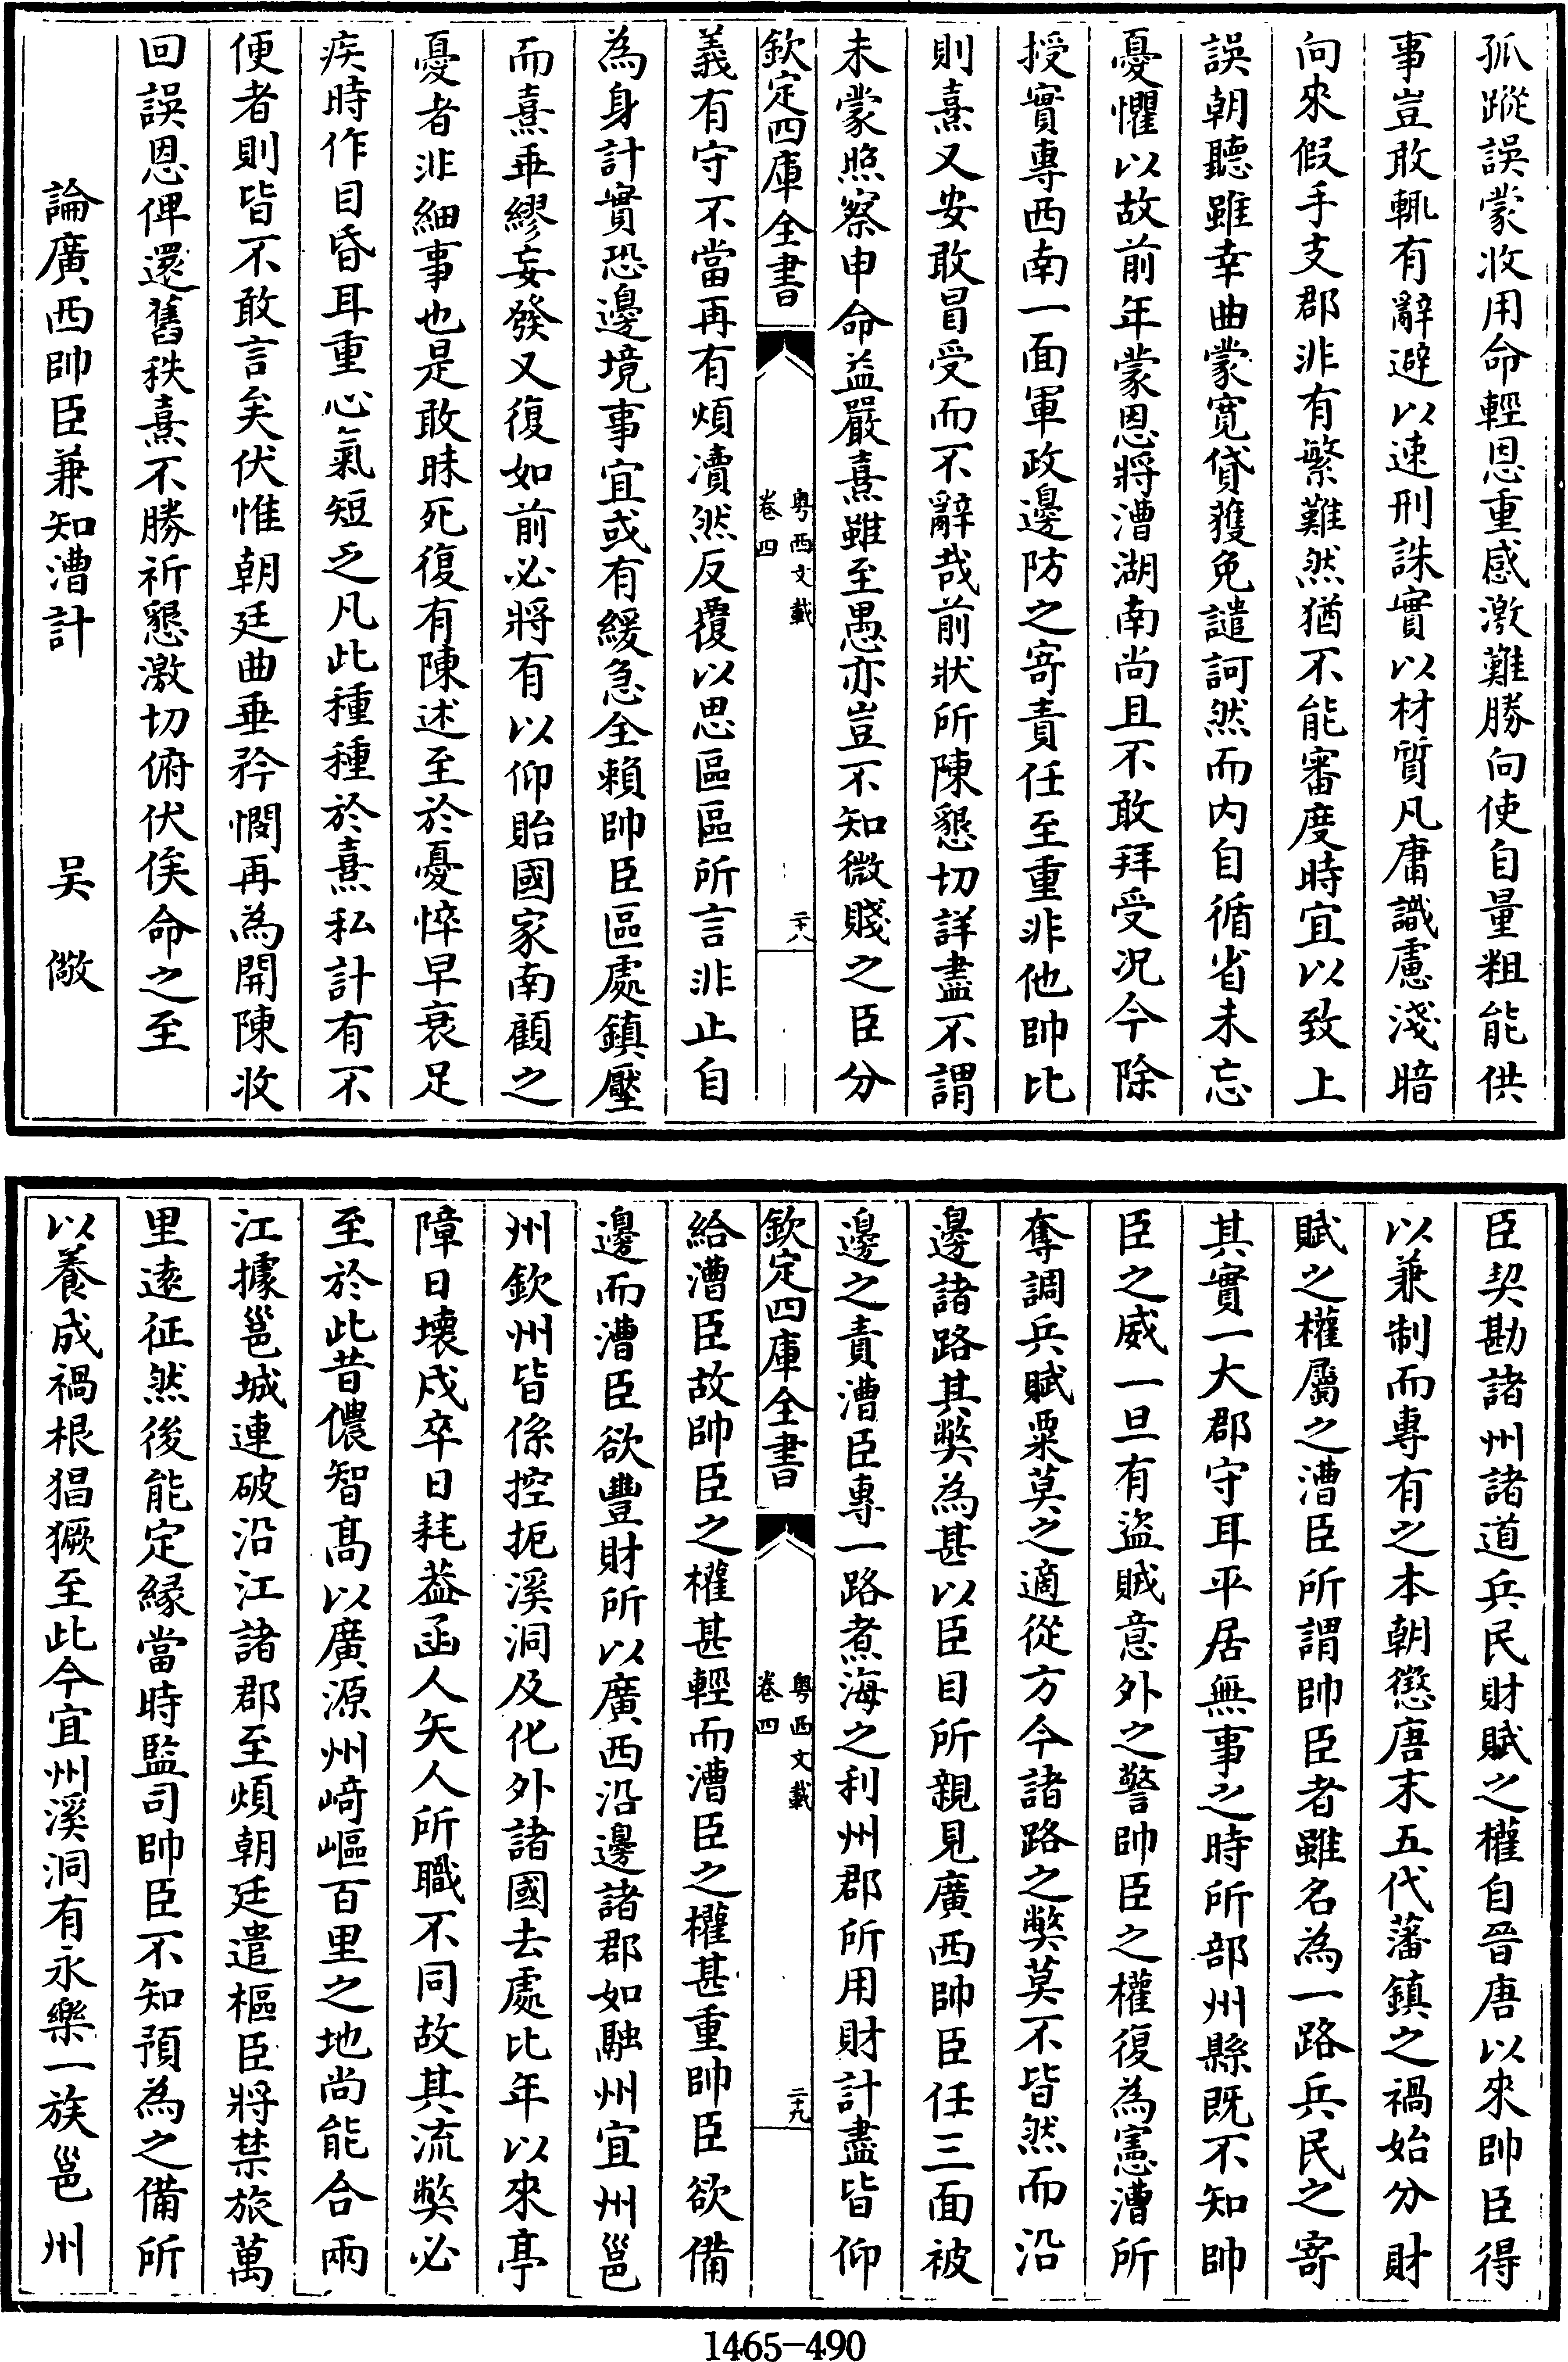 孤蹤誤蒙收用命輕恩重感激難勝向使自量粗能供
事豈敢輒有辭避以速刑誅實以材質凡庸識慮淺暗
向來假手支郡非有繁難然猶不能審度時宜以致上
誤朝聽雖幸曲蒙寛貸獲免譴訶然而内自循省未忘
憂懼以故前年蒙恩將漕湖南尚且不敢拜受况今除
授實專西南一面軍政邊防之寄責任至重非他帥比
則熹又安敢冒受而不辭哉前狀所陳懇切詳盡不謂
未蒙照察申命益嚴熹雖至愚亦豈不知微賤之臣分
欽定四庫全書
粤西文載
卷四
二十八
義有守不當再有煩瀆然反覆以思區區所言非止自
為身計實恐邊境事宜或有緩急全賴帥臣區處鎮壓
而熹乖繆妄發又復如前必將有以仰貽國家南顧之
憂者非細事也是敢昧死復有陳述至於憂悴早衰足
疾時作目昏耳重心氣短乏凡此種種於熹私計有不
便者則皆不敢言矣伏惟朝廷曲垂矜憫再為開陳收
回誤恩俾還舊秩熹不勝祈懇激切俯伏俟命之至
論廣西帥臣兼知漕計
吴儆
臣契勘諸州諸道兵民財賦之權自晉唐以來帥臣得
以兼制而專有之本朝懲唐末五代藩鎮之禍始分財
賦之權屬之漕臣所謂帥臣者雖名為一路兵民之寄
其實一大郡守耳平居無事之時所部州縣既不知帥
臣之威一旦有盜賊意外之警帥臣之權復為憲漕所
奪調兵賦粟莫之適從方今諸路之弊莫不皆然而沿
邊諸路其弊為甚以臣目所親見廣西帥臣任三面被
邊之責漕臣專一路煮海之利州郡所用財計盡皆仰
欽定四庫全書
粤西文載
卷四
二十九
給漕臣故帥臣之權甚輕而漕臣之權甚重帥臣欲備
邊而漕臣欲豐財所以廣西沿邊諸郡如融州宜州邕
州欽州皆係控扼溪洞及化外諸國去處比年以來亭
障日壊戍卒日耗葢函人矢人所職不同故其流弊必
至於此昔儂智髙以廣源州﨑嶇百里之地尚能合兩
江據邕城連破沿江諸郡至煩朝廷遣樞臣將禁旅萬
里遠征然後能定縁當時監司帥臣不知預為之備所
以養成禍根猖獗至此今宜州溪洞有永樂一族邕州
1465-490